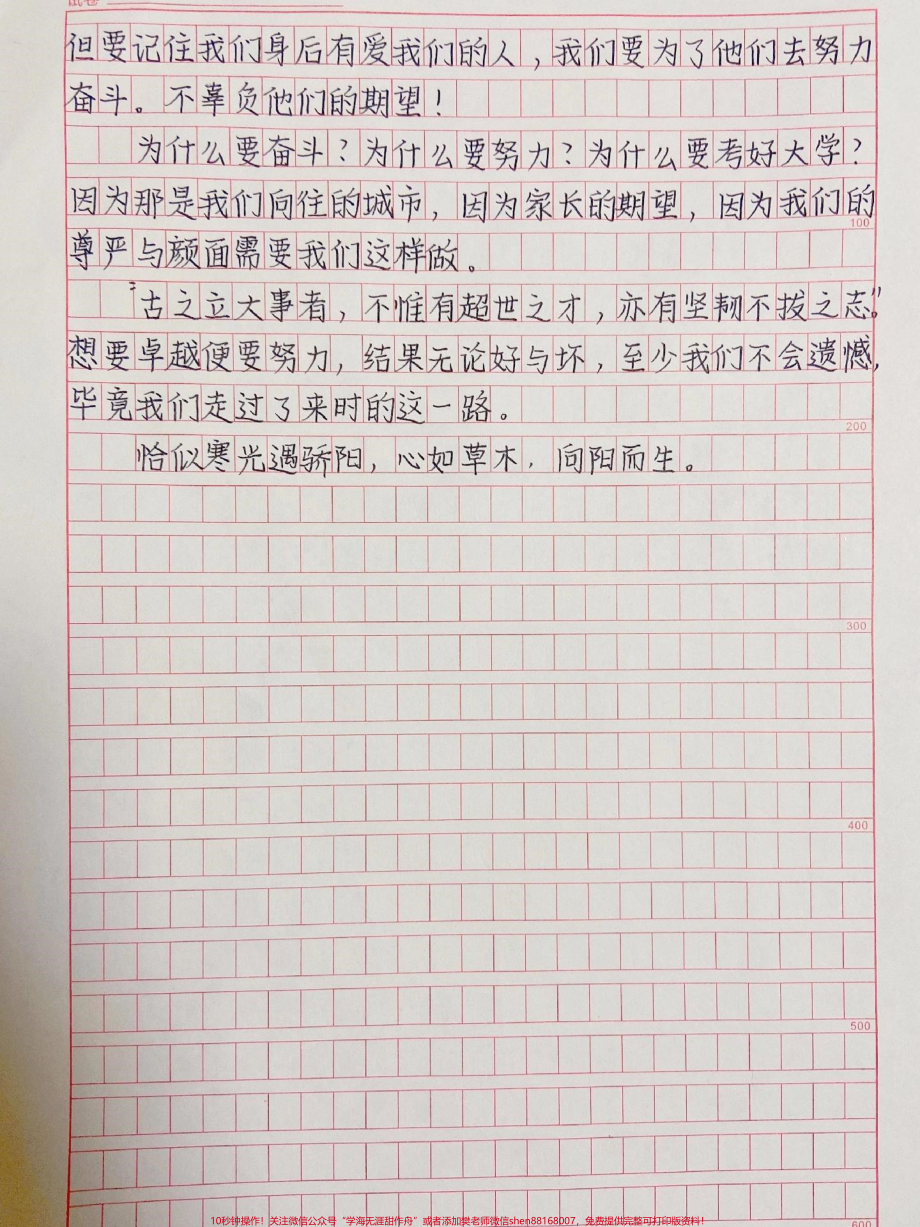 试卷
但要记住我们身后有爱我们的人，我们要为了他们去努力
奋斗。不辜负他们的期望！
为什么要奋斗？为什么要努力？为什么要考好大学？
因为那是我们向往的城市，因为家长的期望，因为我们的
100
尊严与颜面需要我们这样做。
“古之立大事者，不惟有超世之才，亦有坚韧不拔之志。”
想要卓越便要努力，结果无论好与坏，至少我们不会遗憾，
毕竟我们走过了来时的这一路。
200
恰似寒光遇骄阳，心如草木，向阳而生。
300
400
500
600
10秒钟操作！关注微信公众号“学海无涯甜作舟”或者添加樊老师微信shen88168007，免费提供完整可打印版资料！